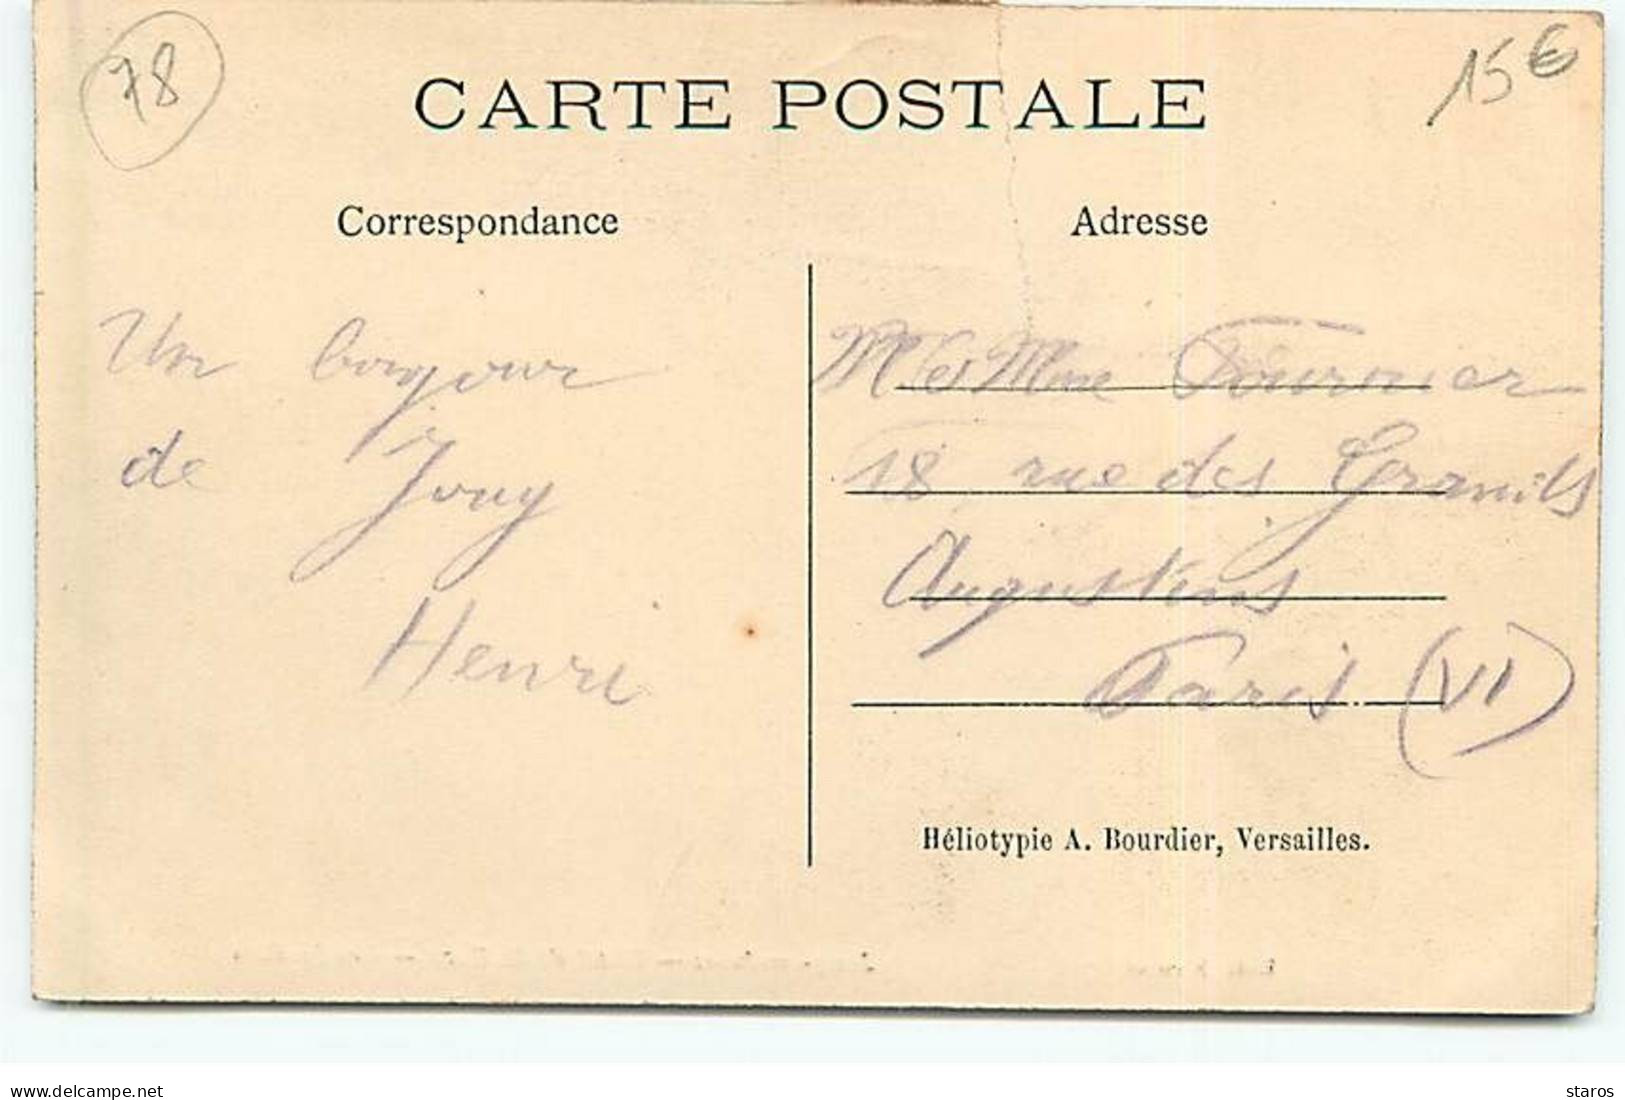 78
15 €
CARTE POSTALE
Correspondance
Adresse
Un bonjour
de Jouy
Henri
M et Mme Fournier
18 rue des Grands
Augustins
Paris (VI)
Héliotypie A. Bourdier, Versailles.
delcampe.net
staros